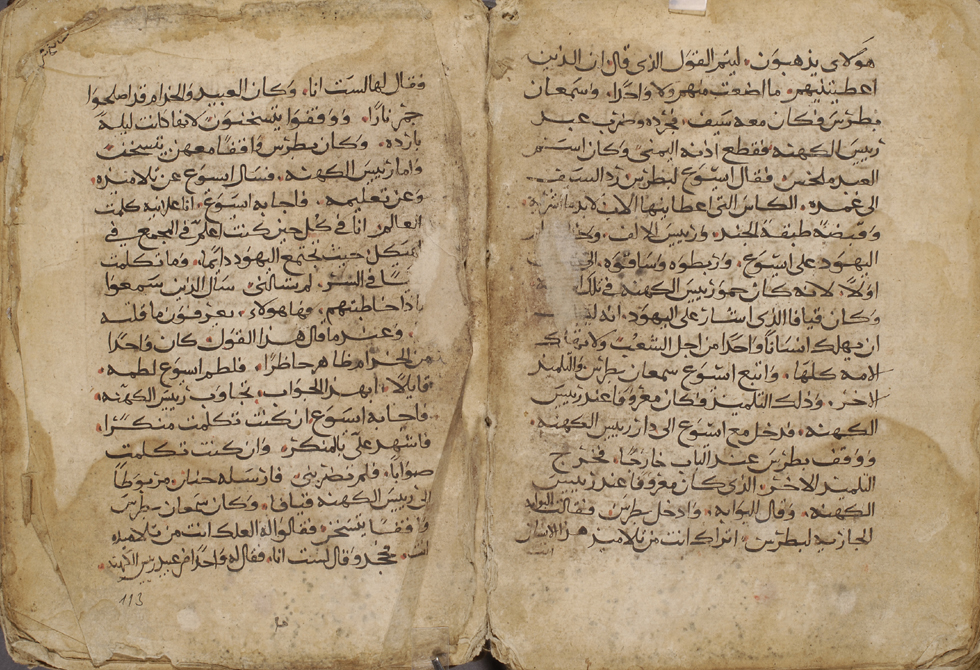 هولاى يذهبون. ليتم القول الذى قال ان الذين
اعطيتنيهم. ما اضعت منهم ولا واحدا. وسمعان
بطرس فكان معه سيف. فجرده وضرب عبد
رييس الكهنه فقطع اذنه اليمنى وكان اسم
العبد ملخس. فقال ايسوع لبطرس رد السيف
الى غمده. الكاس التى اعطانيها الاب لابد ما اشربه
وقبضه طبقة الجند. ورييس الالف.
اليهود على ايسوع. وربطوه وساقوه.
اولا. لانه كان حمو رييس الكهنه فى تلك
وكان قيافا الذى اشار على اليهود. انه
ان يهلك انسانا واحدا من اجل الشعب ولا تهلك
الامه كلها. واتبع ايسوع سمعان بطرس والتلميذ
الاخر. وذلك التلميذ وكان معروفا عند رييس
الكهنه. فدخل مع ايسوع الى دار رييس الكهنه.
ووقف بطرس عند الباب خارجا. فخرج
التلميذ الاخر. الذى كان معروفا عند رييس
الكهنه. وقال للبوابه. وادخل بطرس فقالت البوابه
الجاريه لبطرس. اتراك انت من تلاميذ هذا الانسان
انت
فقال لها لست انا. وكان العبيد والخدام قد اصلحوا
جمر نارا. ووقفوا يتسخنون لانها كانت ليلة
بارده. وكان بطرس واقفا معهن يتسخن
واما رييس الكهنه. فسال ايسوع عن تلاميذه
وعن تعليمه. فاجابه ايسوع. انا علانيه كلمت
العالم. انا فى كل حين كنت اعلم فى المجمع فى
الهيكل حيث تجتمع اليهود دايما. وما تكلمت
فى السر. لم تسالنى سال الذين سمعوا
ماذا خاطبتهم. وها هولاء. يعرفون ما قلته
وعند ما قال هذا القول كان واحدا
من الخدام ظاهر حاظرا. فلطم ايسوع لطمه.
قايلا. ابهذا الجواب. تجاوب رييس الكهنه.
فاجابه ايسوع. ان كنت تكلمت منكرا.
فاشهد على بالمنكر. وان كنت تكلمت
صوابا. فلم تضربنى. فارسله حنان مربوطا
الى رييس الكهنه قيافا. وكان سمعان بطرس
واقفا يتسخن. فقالوا له العلك انت من تلاميذه
انت. فجحد وقال لست انا. فقال له واحدا من عبيد رييس الكهنه.
113